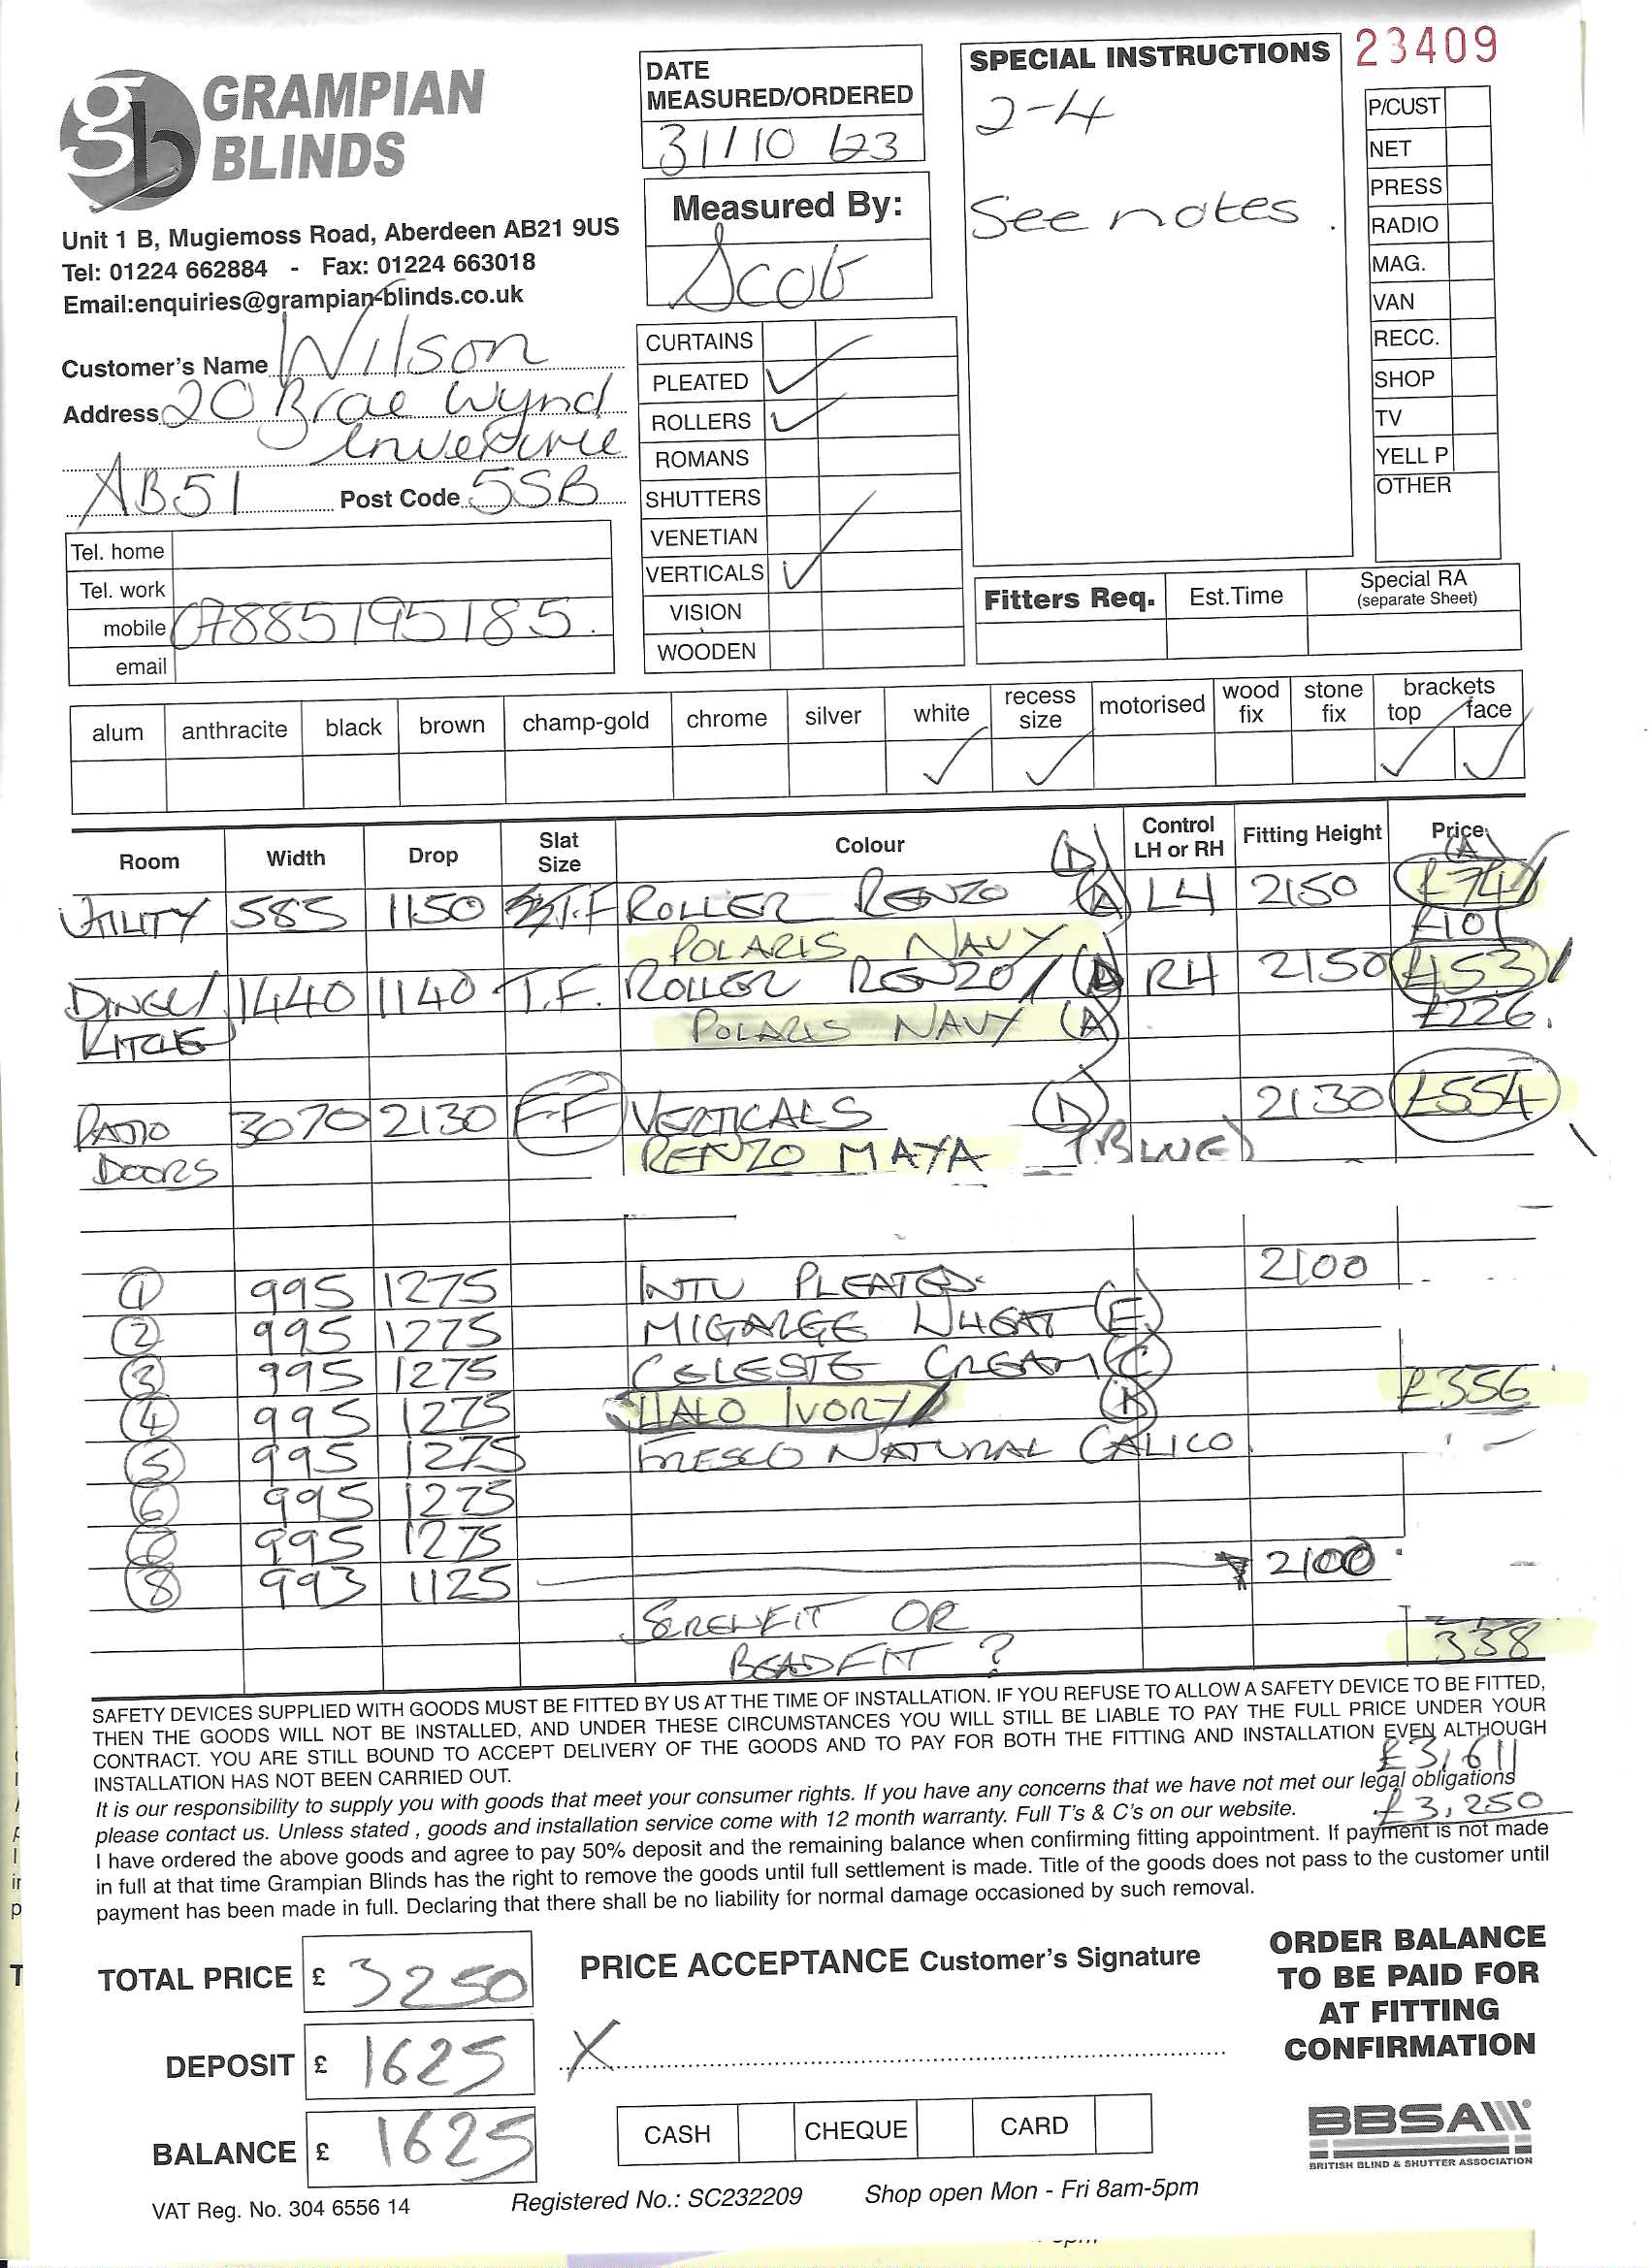 GRAMPIAN
BLINDS
Unit 1 B, Mugiemoss Road, Aberdeen AB21 9US
Tel: 01224 662884 - Fax: 01224 663018
Email:enquiries@grampian-blinds.co.uk
Customer's Name Wilson
Address 20 Brae Wynd
Inverurie
AB51 Post Code 5SB
Tel. home
Tel. work
mobile 07885195185.
email
DATE
MEASURED/ORDERED
31/10/23
Measured By:
CURTAINS
PLEATED ✓
ROLLERS ✓
ROMANS
SHUTTERS
VENETIAN
VERTICALS ✓
VISION
WOODEN
SPECIAL INSTRUCTIONS
2-4
See notes.
23409
P/CUST
NET
PRESS
RADIO
MAG.
VAN
RECC.
SHOP
TV
YELL P
OTHER
Fitters Req. Est.Time Special RA
(separate Sheet)
alum anthracite black brown champ-gold chrome silver white recess size motorised wood fix stone fix brackets top face
✓ ✓ ✓ ✓
Room Width Drop Slat Size Colour Control LH or RH Fitting Height Price
(D) (A)
UTILITY 585 1150 T.F ROLLER RENZO (A) LH 2150 £74
POLARIS NAVY £101
DINGE/ 1440 1140 T.F. ROLLER RENZO (D) RH 2150 £453
KITCHE POLARIS NAVY (A) £226.
PATIO 3070 2130 F-F VERTICALS (D) 2130 £554
DOORS RENZO MAYA (BLUE)
① 995 1275 INTU PLEATED 2100
② 995 1275 MIGARGE WHEAT (E)
③ 995 1275 CELESTE CREAM (C)
④ 995 1275 HALO IVORY £356
⑤ 995 1275 FRESCO NATURAL CALICO
⑥ 995 1275
995 1275
⑧ 993 1125 2100
SCREWFIT OR
BEADFIT ? 338
SAFETY DEVICES SUPPLIED WITH GOODS MUST BE FITTED BY US AT THE TIME OF INSTALLATION. IF YOU REFUSE TO ALLOW A SAFETY DEVICE TO BE FITTED,
THEN THE GOODS WILL NOT BE INSTALLED, AND UNDER THESE CIRCUMSTANCES YOU WILL STILL BE LIABLE TO PAY THE FULL PRICE UNDER YOUR
CONTRACT. YOU ARE STILL BOUND TO ACCEPT DELIVERY OF THE GOODS AND TO PAY FOR BOTH THE FITTING AND INSTALLATION EVEN ALTHOUGH
INSTALLATION HAS NOT BEEN CARRIED OUT.
£3,611
It is our responsibility to supply you with goods that meet your consumer rights. If you have any concerns that we have not met our legal obligations
please contact us. Unless stated , goods and installation service come with 12 month warranty. Full T's & C's on our website.
£3,250
I have ordered the above goods and agree to pay 50% deposit and the remaining balance when confirming fitting appointment. If payment is not made
in full at that time Grampian Blinds has the right to remove the goods until full settlement is made. Title of the goods does not pass to the customer until
payment has been made in full. Declaring that there shall be no liability for normal damage occasioned by such removal.
TOTAL PRICE £ 3250
DEPOSIT £ 1625
BALANCE £ 1625
PRICE ACCEPTANCE Customer's Signature
X
CASH CHEQUE CARD
ORDER BALANCE
TO BE PAID FOR
AT FITTING
CONFIRMATION
BBSA
BRITISH BLIND & SHUTTER ASSOCIATION
VAT Reg. No. 304 6556 14 Registered No.: SC232209 Shop open Mon - Fri 8am-5pm